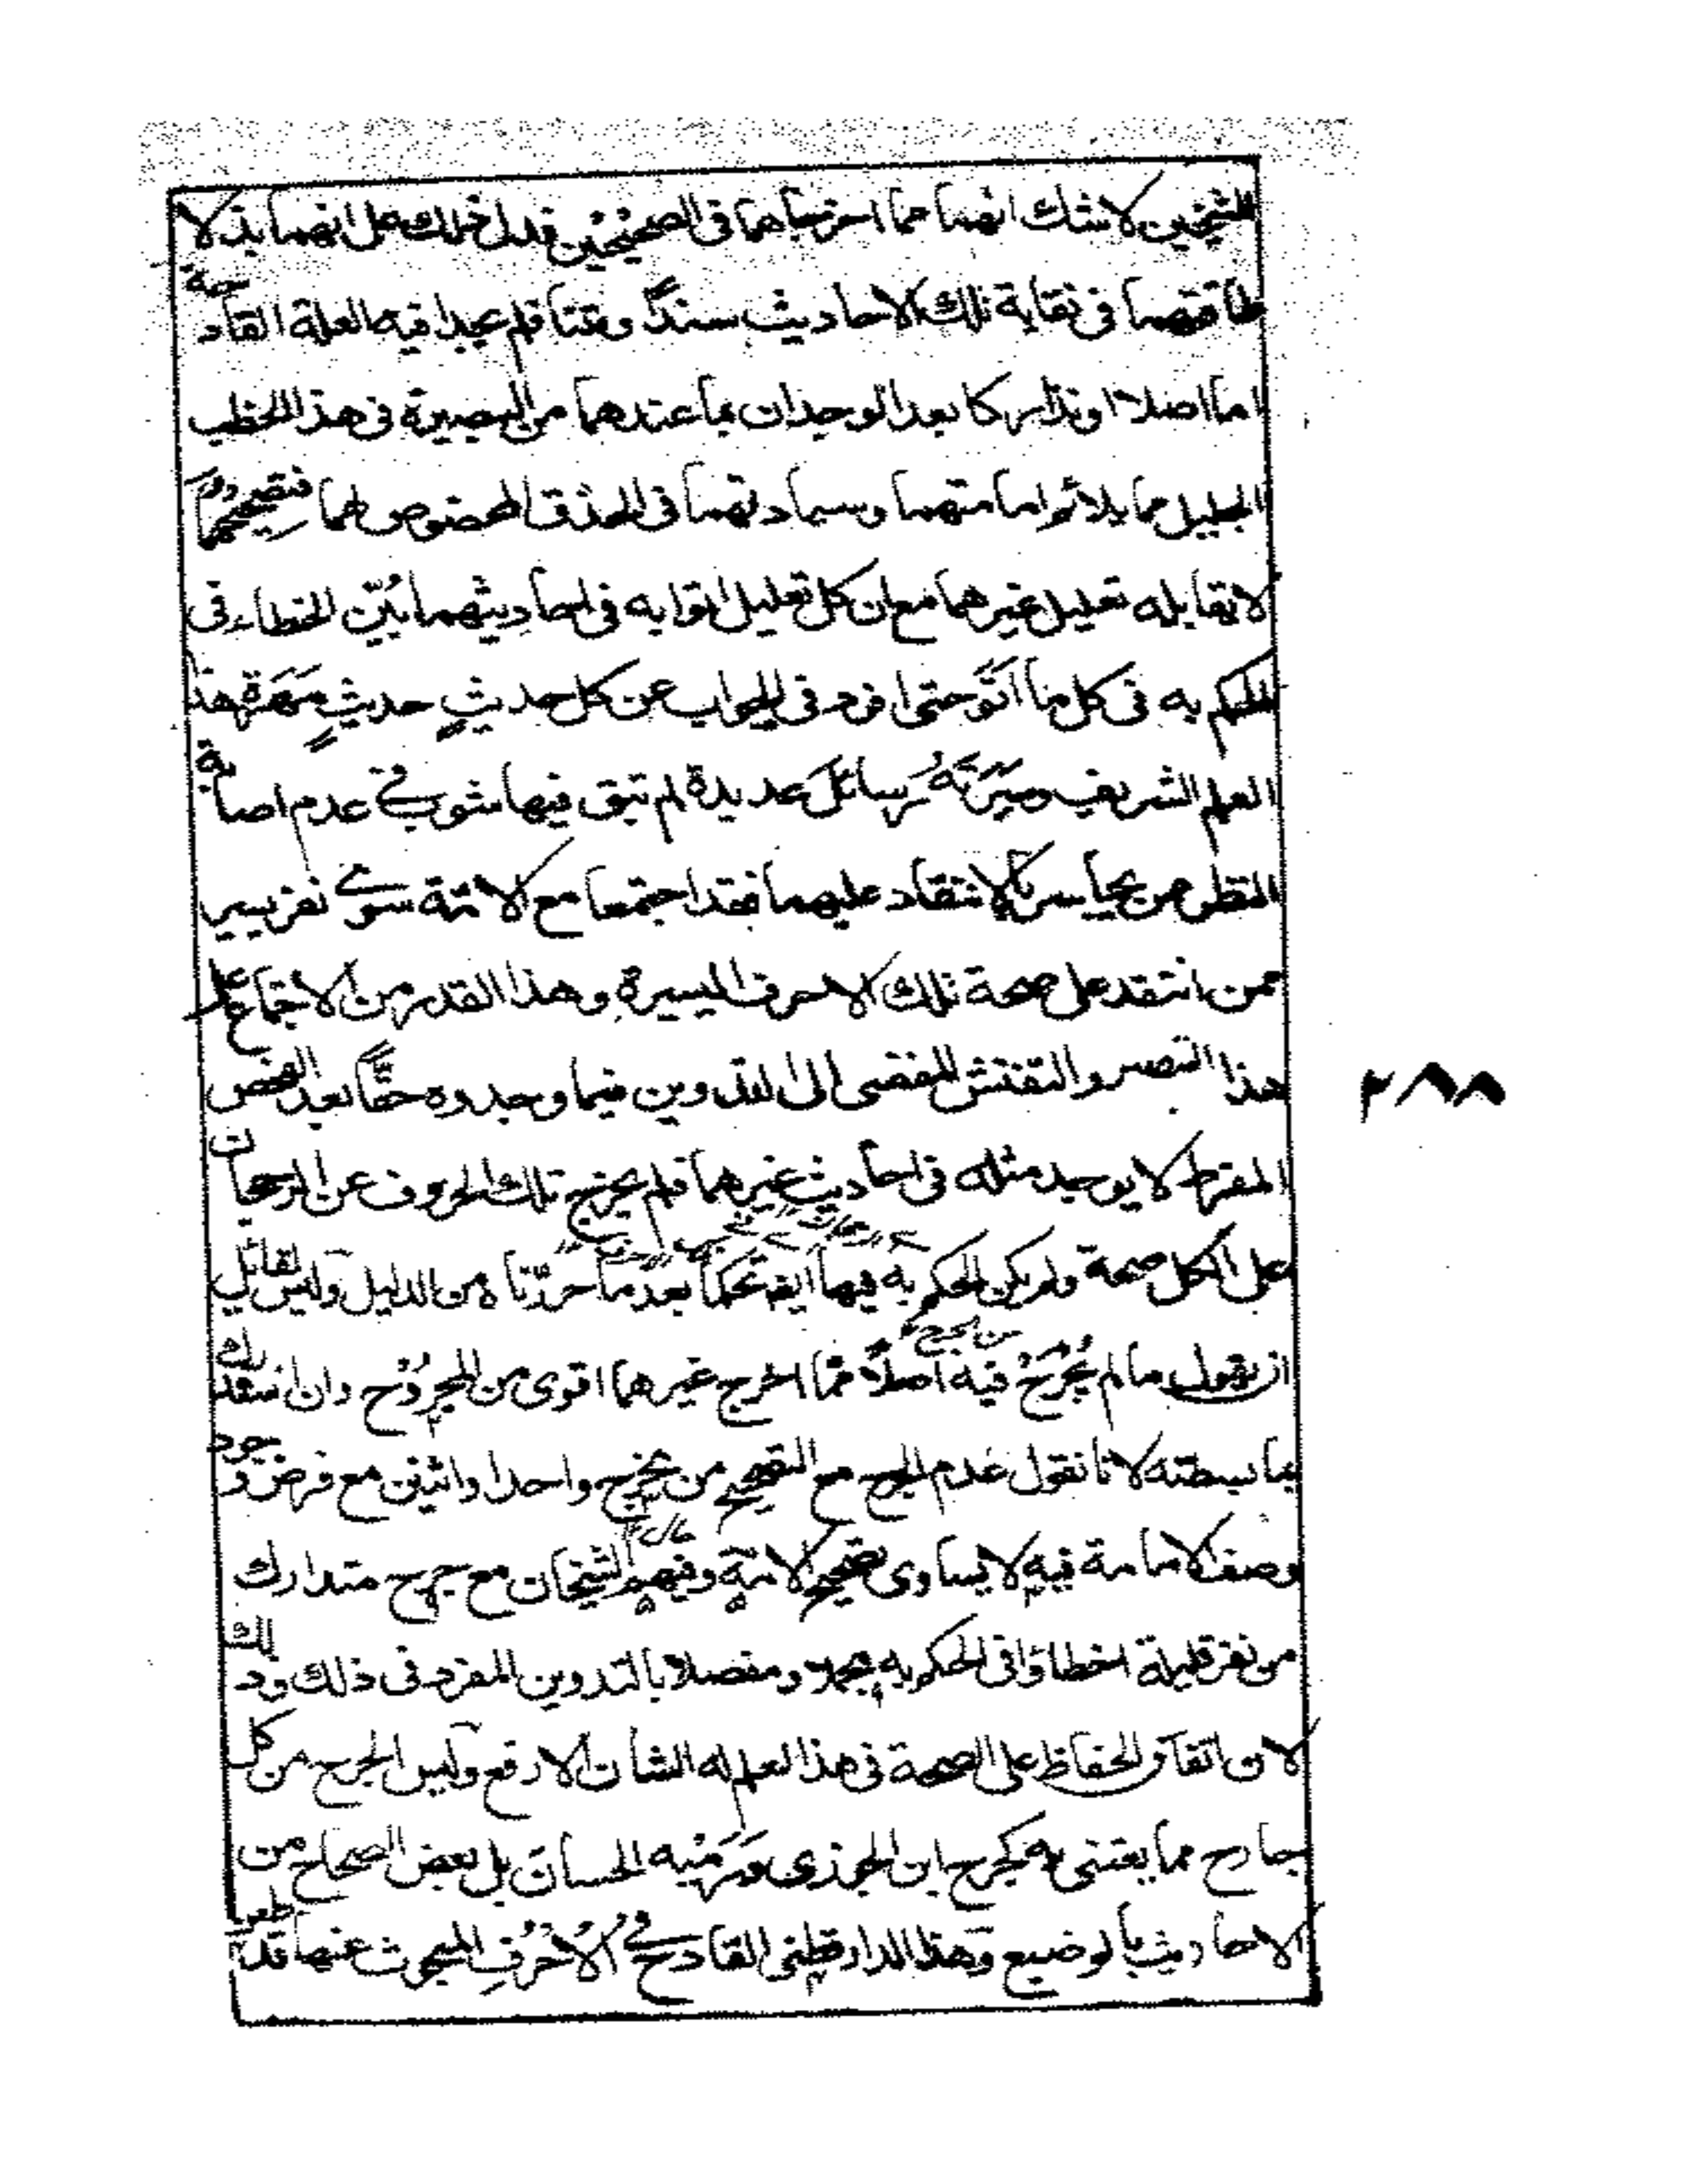 للشيخين لا شك انهما مما اخرجاهما فى الصحيحين فدل ذلك على انهما بذلا
طاقتهما فى نقاية تلك الاحاديث سندًا ومتنا فلم يجدا فيه العلة القادحة
اما اصلا او تداركا بعد الوجدان بما عندهما من البصيرة فى هذا الخطب
الجليل مما يلائم امامتهما وسيادتهما فى الحذق المخصوص لهما فتصحيحهما
لا يقابله تعليل غيرهما مع ان كل تعليل اتوا به فى احاديثهما بُيّن الخطاء فى
الحكم به فى كل ما اتَوا حتى افرد فى الجواب عن كل حديثٍ حديثٍ مَهَرَة هذا
العلم الشريف رسائل عديدة لم تبق فيها شوب فى عدم اصابة
النظر من يجاسر بالانتقاد عليهما فقد اجتمعا مع الائمة سوى نفر يسير
ممن انتقد على صحة تلك الاحرف اليسيرة وهذا القدر من الاجتماع على
هذا التبصر والتفتش المفضى الى التدوين فيما وجدوه حقًّا بعد الفحص
المفرط لا يوجد مثله فى احاديث غيرهما فلم يخرج تلك الحروف عن الرجحان
على الكل صحة ولم يكن الحكم به فيها ايضا تحكما بعد ما حررنا من الدليل وليس لقائل
ان يقول ما لم يُجرَح فيه اصلًا مما اخرج غيرهما اقوى من المجروح وان
بما بسطته لانا نقول عدم الجرح مع التصحيح من مخرج واحد او اثنين مع فرض وجود
وصف الامامة فيه لا يساوى تصحيح الائمة وفيهم الشيخان مع جرح متدارك
من نفر قليلة اخطاؤا فى الحكم به مجملا ومفصلا بالتدوين المفرد فى ذلك وذلك
لان اتفاق الحفاظ على الصحة فى هذا العلم له الشان الارفع وليس الجرح من كل
جارح مما يعتنى به كجرح ابن الجوزى ورميه الحسان بل بعض الصحاح من
الاحاديث بالوضع وهذا الدارقطنى القادح فى الاحرف المبحوث عنها قد طعن
٢٨٨